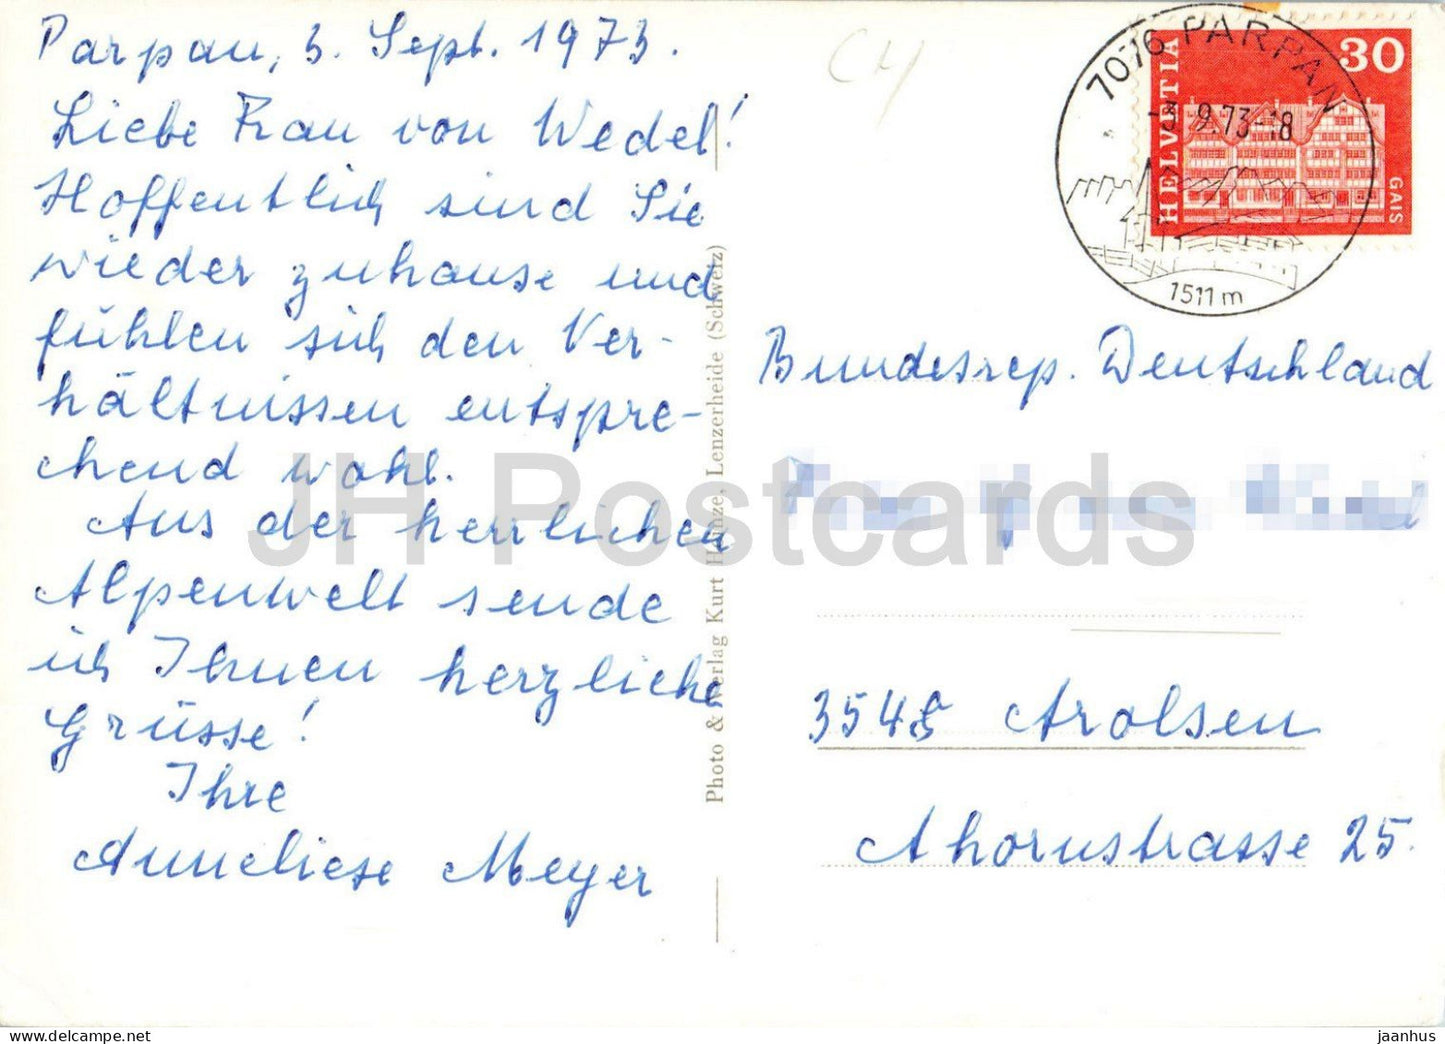 Parpan, 3. Sept. 1973.
Liebe Frau von Wedel!
Hoffentlich sind Sie
wieder zuhause und
fühlen sich den Ver-
hältnissen entspre-
chend wohl.
Aus der herrlichen
Alpenwelt sende
ich Ihnen herzliche
Grüsse!
Ihre
Anneliese Meyer
Photo & Verlag Kurt Heinze, Lenzerheide (Schweiz)
CH
7076 PARPAN
-3.9.73-18
1511 m
HELVETIA
30
GAIS
Bundesrep. Deutschland
3548 Arolsen
Ahornstrasse 25.
JH Postcards
jaanhus